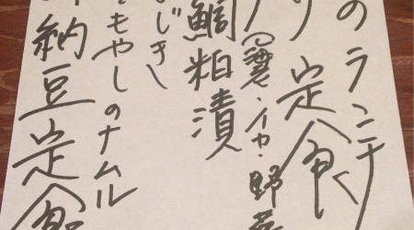 のランチ
定食
イカ・野菜
鯛粕漬
ひじき
もやしのナムル
納豆定食